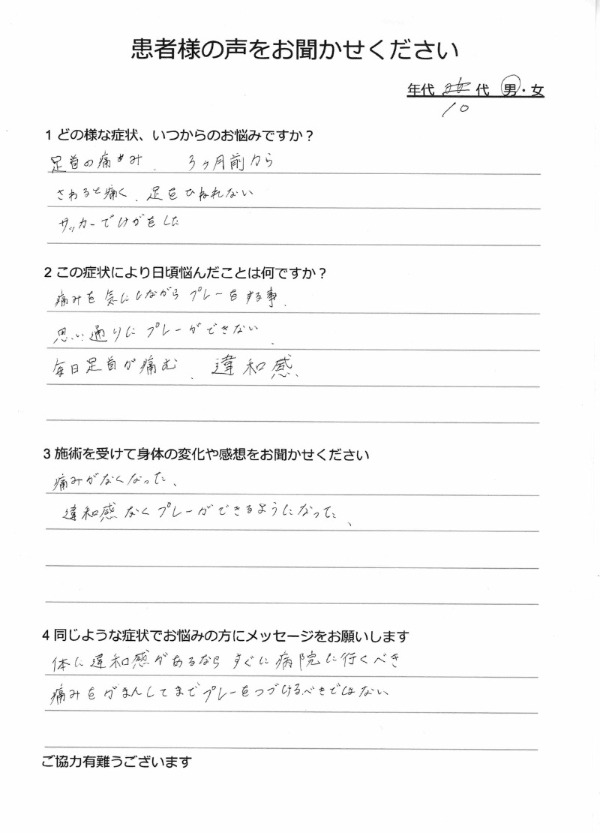 患者様の声をお聞かせください
年代 代 男・女
10
1 どの様な症状、いつからのお悩みですか？
足首の痛み、 3ヶ月前から
さわると痛く、足をひねれない
サッカーでけがをした
2 この症状により日頃悩んだことは何ですか？
痛みを気にしながらプレーをする事、
思い通りにプレーができない、
毎日足首が痛む、 違和感、
3 施術を受けて身体の変化や感想をお聞かせください
痛みがなくなった、
違和感なくプレーができるようになった、
4 同じような症状でお悩みの方にメッセージをお願いします
体に違和感があるならすぐに病院に行くべき
痛みをがまんしてまでプレーをつづけるべきではない
ご協力有難うございます